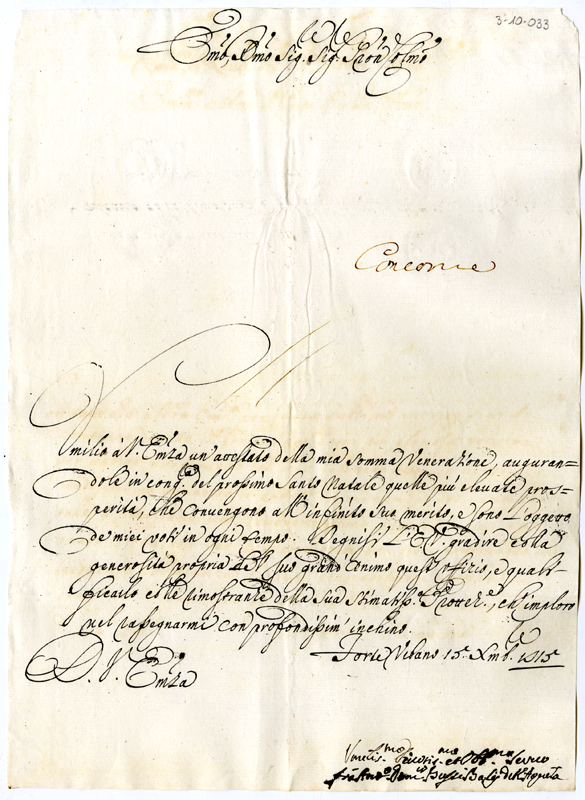 3-10-033
Em̃o, Rm̃o Sig.r Sig.r Pron Colm̃o
Concorre
Umilio à V. Emza un attestato della mia somma Venerazione, auguran=
dole in cong.a del prossimo Santo Natale quelle più elevate pros=
perità, che convengono all'infinito suo merito, e sono l'oggetto
de miei voti in ogni tempo. Degnisi L'E.V. gradire colla
generosità propria del suo grand'animo quest'ofizio, e quali-
ficarlo colle rimostranze della sua stimatiss.a Protez.e, ch'imploro
nel rassegnarmi con profondissim'inchino.
D. V. Emza
Forlì 15. Xmb.e
Umilis.mo Devotis.mo et Obb.mo Servo